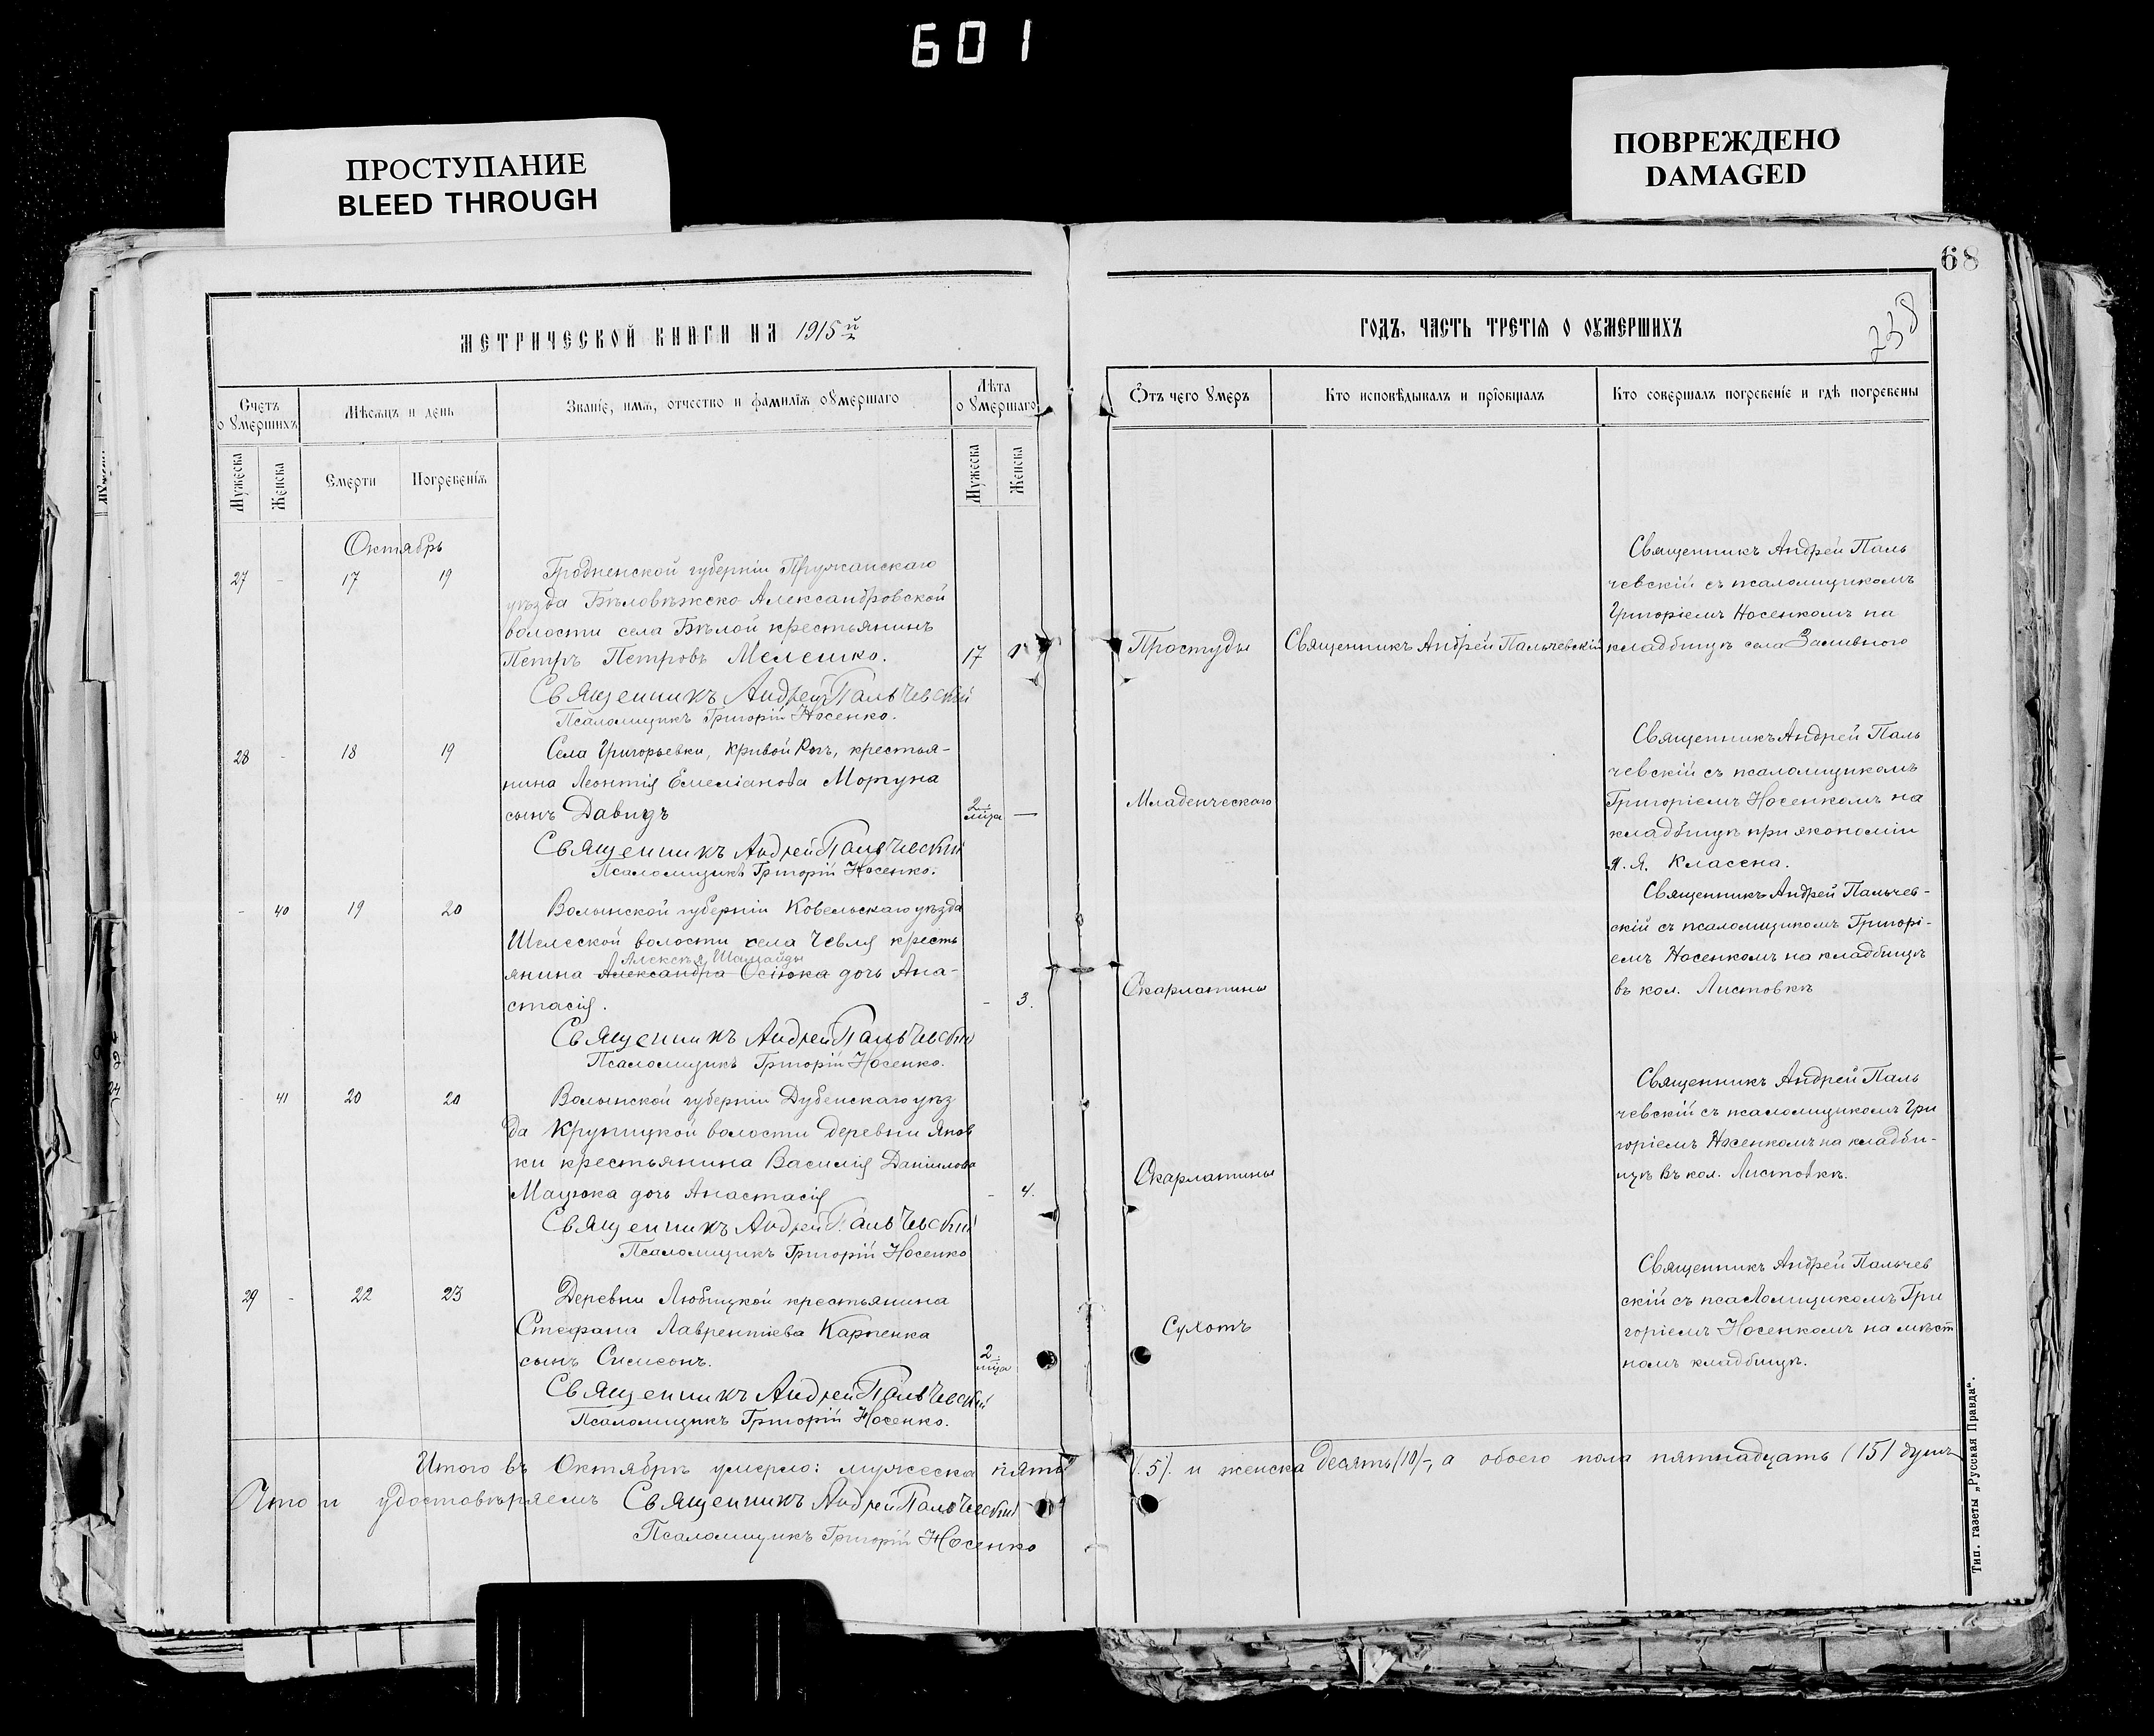 601
ПРОСТУПАНИЕ
BLEED THROUGH
ПОВРЕЖДЕНО
DAMAGED
68
МЕТРИЧЕСКОЙ КНИГИ НА 1915й
ГОДЪ, ЧАСТЬ ТРЕТІЯ О ОУМЕРШИХЪ
Счетъ
оумершихъ
Мѣсяцъ и день
Званіе, имя, отчество и фамилія оумершаго
Лѣта
оумершаго
Мужеска
Женска
Смерти
Погребенія
Мужеска
Женска
Отъ чего умеръ
Кто исповѣдывалъ и пріобщалъ
Кто совершалъ погребеніе и гдѣ погребены
Октябрь
27 - 17 19
Гродненской губерніи Пружанскаго
уѣзда Бѣловѣжско Александровской
волости села Бѣлой крестьянинъ
Петръ Петровъ Мелешко. 17
Священникъ Андрей Пальчевскій
Псаломщикъ Григорій Носенко.
Простуды
Священникъ Андрей Пальчевскій
Священникъ Андрей Паль
чевскій съ псаломщикомъ
Григоріемъ Носенкомъ на
кладбищѣ села Заливного
28 - 18 19
Села Григорьевки, Кривой Рогъ, крестья-
нина Леонтія Емеліанова Моргуна
сынъ Давидъ 2 мца —
Священникъ Андрей Пальчевскій
Псаломщикъ Григорій Носенко.
Младенческаго
Священникъ Андрей Паль
чевскій съ псаломщикомъ
Григоріемъ Носенкомъ на
кладбищѣ при экономіи
Я. Я. Классена.
- 40 19 20
Волынской губерніи Ковельскаго уѣзда
волости села Чевля кресть
Алексѣя Шамайды
янина Александра Осіюка дочь Ана-
стасія. - 3.
Священникъ Андрей Пальчевскій
Псаломщикъ Григорій Носенко.
Скарлатины
Священникъ Андрей Пальчев-
скій съ псаломщикомъ Григорі-
емъ Носенкомъ на кладбищѣ
въ кол. Листовкѣ
- 41 20 20
Волынской губерніи Дубенскаго уѣз
да Крупицкой волости деревни Янов
ки крестьянина Василія Даніилова
Мацюка дочь Анастасія - 4.
Священникъ Андрей Пальчевскій
Псаломщикъ Григорій Носенко
Скарлатины
Священникъ Андрей Паль
чевскій съ псаломщикомъ Гри
горіемъ Носенкомъ на кладби-
щѣ въ кол. Листовкѣ.
29 - 22 23
Деревни Любицкой крестьянина
Стефана Лаврентіева Карпенка
сынъ Симеонъ. 2 мца
Священникъ Андрей Пальчевскій
Псаломщикъ Григорій Носенко.
Сухотъ
Священникъ Андрей Пальчев
скій съ псаломщикомъ Гри
горіемъ Носенкомъ на мѣст
номъ кладбищѣ.
Итого въ Октябрѣ умерло: мужеска пять (5). и женска десять (10)-, а обоего пола пятнадцать (15) душъ
Что и удостовѣряемъ Священникъ Андрей Пальчевскій
Псаломщикъ Григорій Носенко
Тип. газеты „Русская Правда“.